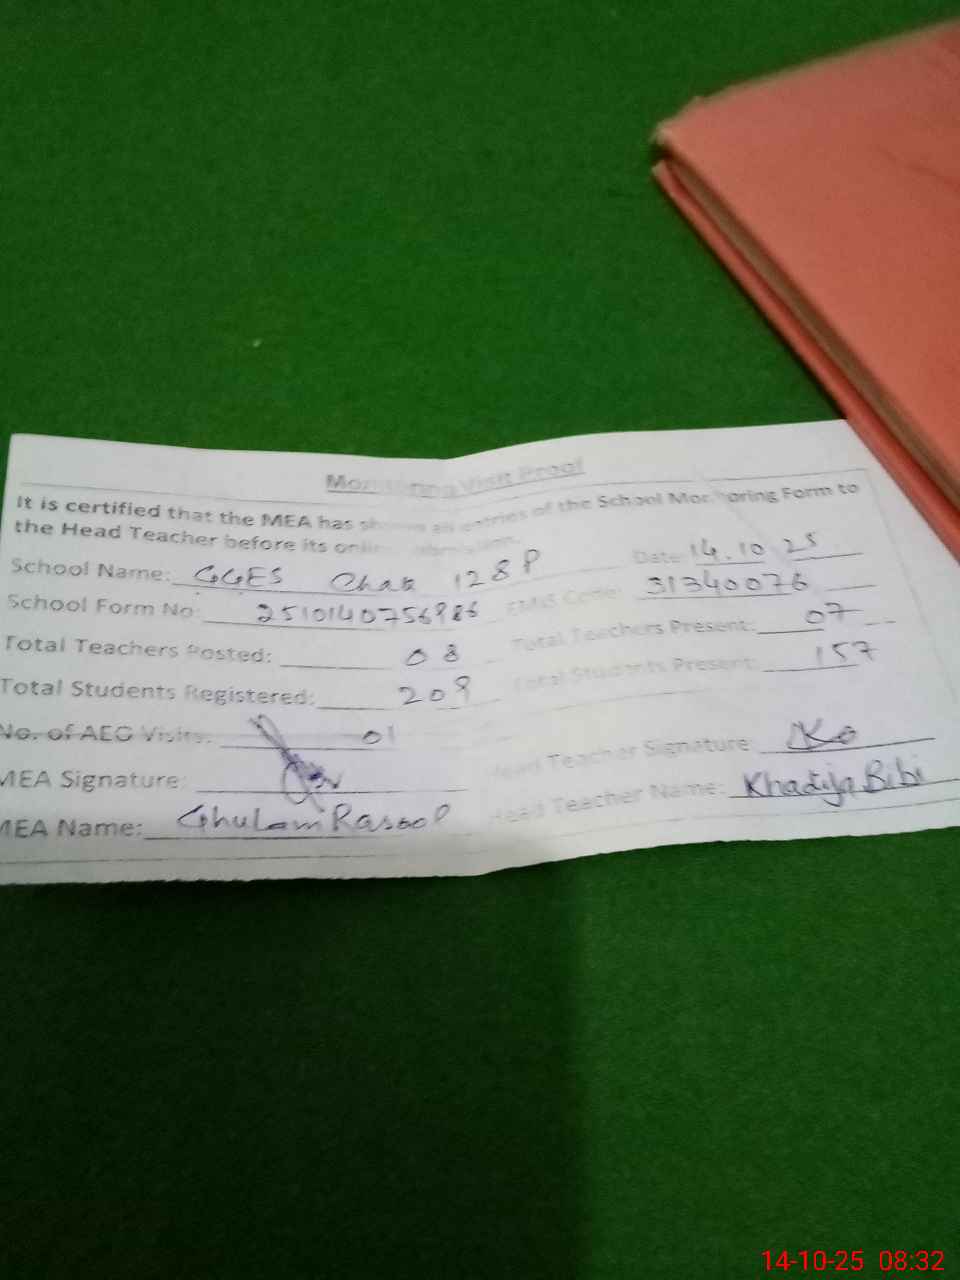 Monitoring Visit Proof
It is certified that the MEA has shown all entries of the School Monitoring Form to
the Head Teacher before its online submission.
School Name: GGES Chak 128P Date: 14.10.25
School Form No: 2510140756986 EMIS Code: 31340076
Total Teachers Posted: 08 Total Teachers Present: 07
Total Students Registered: 209 Total Students Present: 157
No. of AEO Visits: 01
MEA Signature: Head Teacher Signature:
MEA Name: Ghulam Rasool Head Teacher Name: Khadija Bibi
14-10-25 08:32